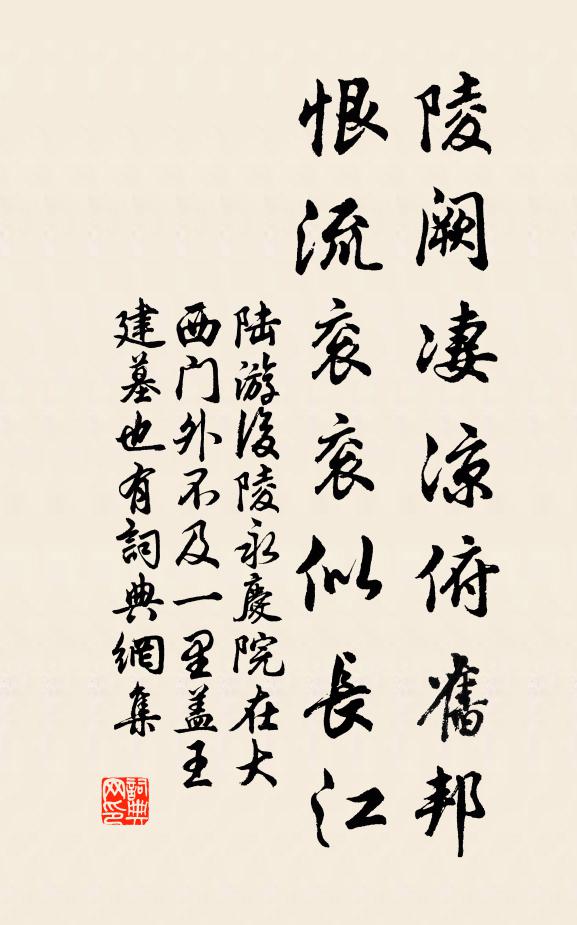 陵阙凄凉俯舊邦
恨流衮衮似長江
陆游後陵永慶院在大
西门外不及一里盖王
建墓也有詞典網集
詞典网印